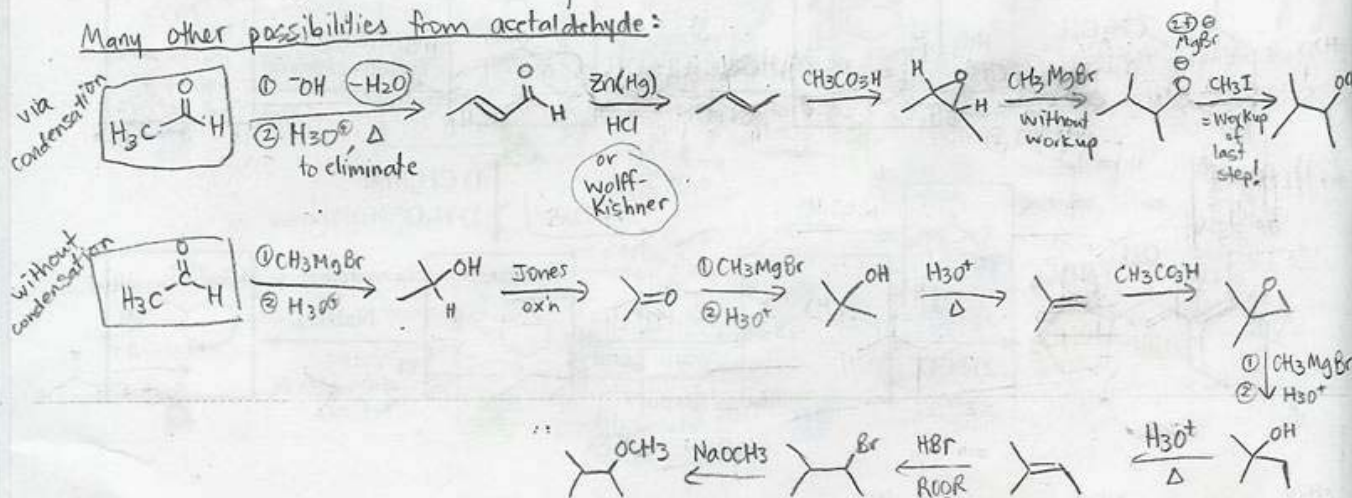 Many other possibilities from acetaldehyde:
via condensation
H3C O H
① ⁻OH -H2O
② H3O⊕, Δ
to eliminate
O H
Zn(Hg)
HCl
or
Wolff-
Kishner
CH3CO3H
H O H
CH3MgBr
without
workup
2+ ⊖
MgBr
⊖
O
CH3I
= workup
of
last
step!
without condensation
H3C O H
① CH3MgBr
② H3O⊕
OH
H
Jones
ox'n
O
① CH3MgBr
② H3O+
OH
H3O+
Δ
CH3CO3H
O
① CH3MgBr
② H3O+
OCH3
NaOCH3
Br
HBr
ROOR
H3O+
Δ
OH